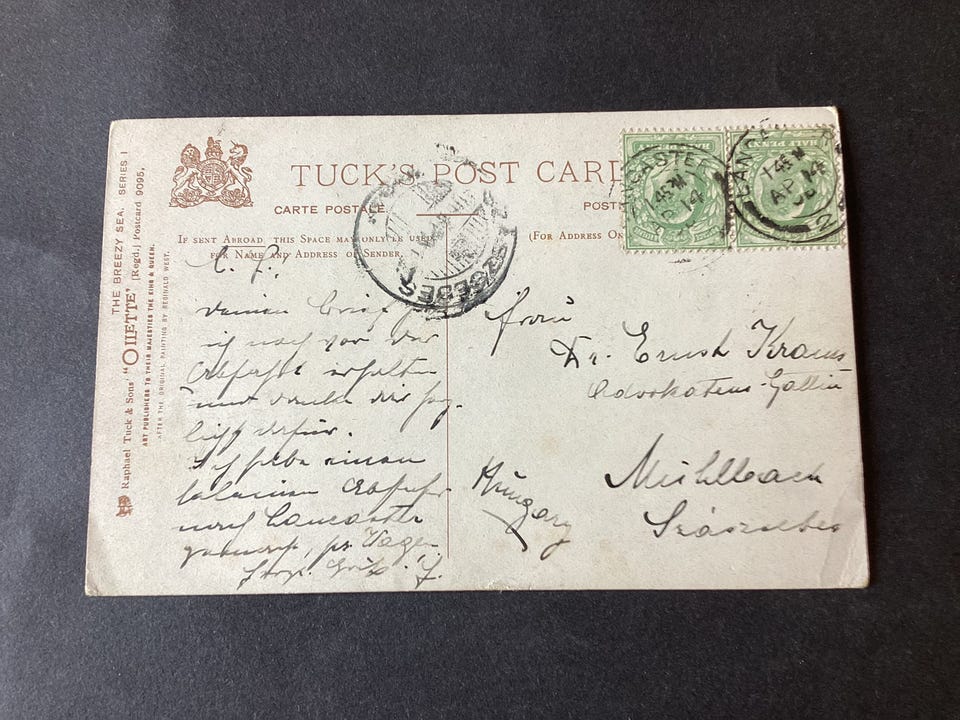 THE BREEZY SEA. SERIES I
Raphael Tuck & Sons' "OILETTE" [Regd.] Postcard 9095.
ART PUBLISHERS TO THEIR MAJESTIES THE KING & QUEEN.
AFTER THE ORIGINAL PAINTING BY REGINALD WEST.
TUCK'S POST CARD
CARTE POSTALE
POST
IF SENT ABROAD THIS SPACE MAY ONLY BE USED
FOR NAME AND ADDRESS OF SENDER.
(FOR ADDRESS ON
HALF PENNY
LANCASTER
1 45 PM
AP 14
SZÁSZSEBES
L. F.!
deinen Brief
ich noch vor der
Abfahrt erhalten
und danke dir
dafür.
Ich habe einen
nach Lancaster
gemacht, per Wagen
Frau
Dr. Ernst Kraus
Advokatens-Gattin
Mühlbach
Szászsebes
Hungary